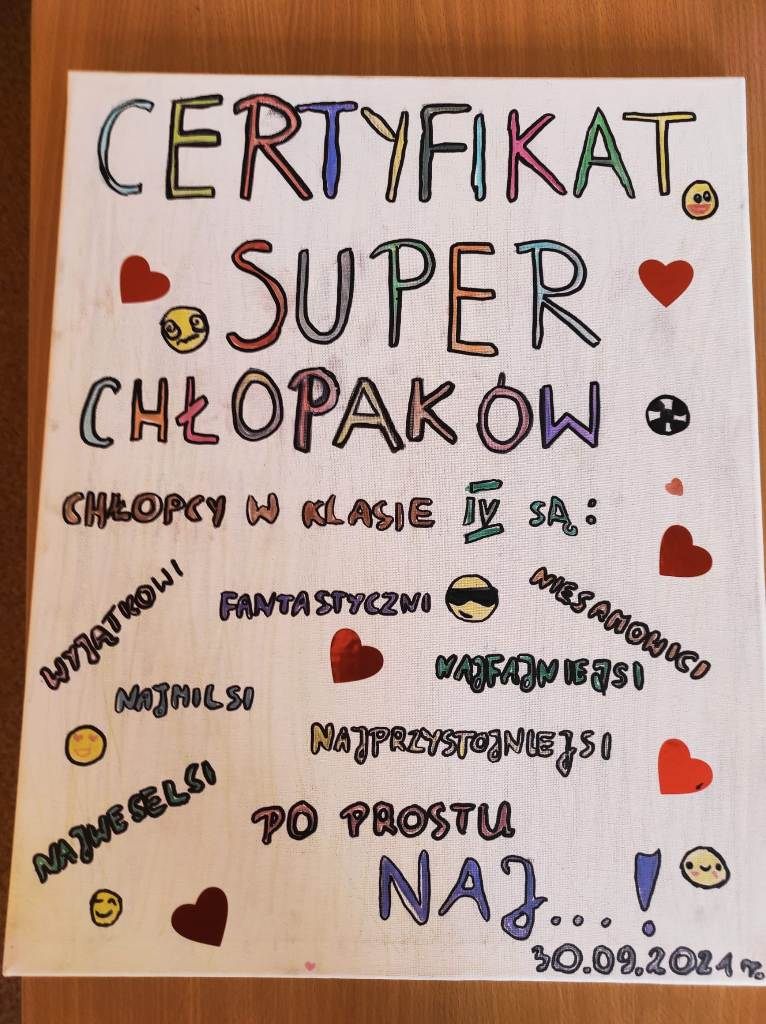 CERTYFIKAT
SUPER
CHŁOPAKÓW
CHŁOPCY W KLASIE IV SĄ:
WYJĄTKOWI
FANTASTYCZNI
NIESAMOWICI
NAJMILSI
NAJFAJNIEJSI
NAJPRZYSTOJNIEJSI
NAJWESELSI
PO PROSTU
NAJ...!
30.09.2021 r.